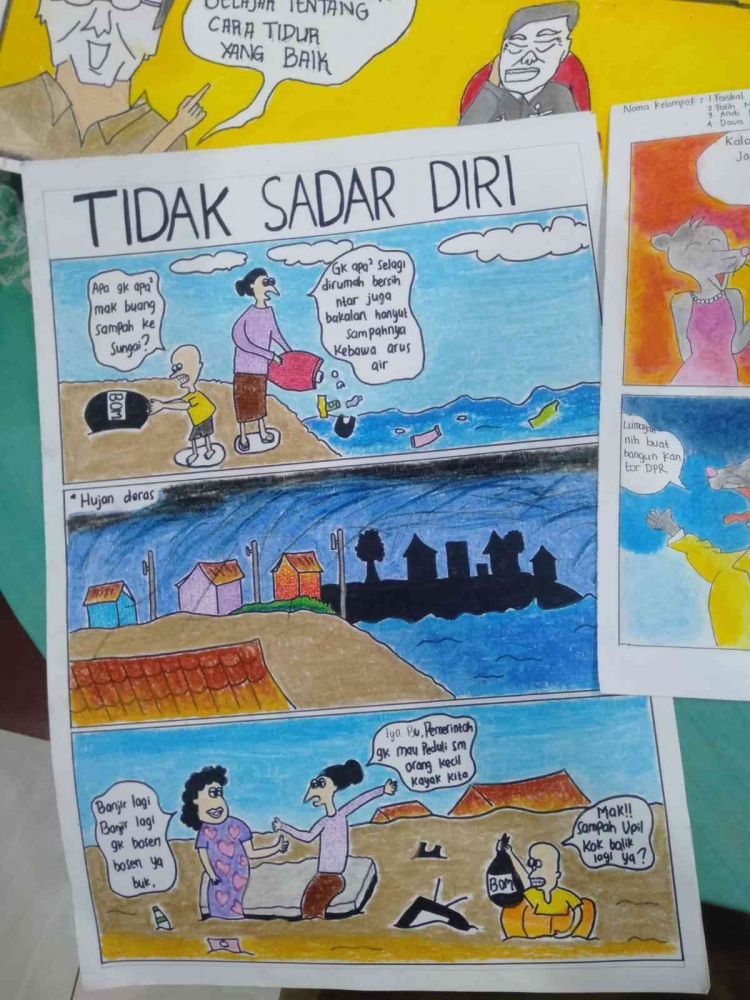 BELAJAR TENTANG
CARA TIDUR
YANG BAIK
Nama Kelompok : 1
2
3 Andi
4 Dava
TIDAK SADAR DIRI
Apa gk apa²
mak buang
sampah ke
Sungai?
Gk apa² selagi
dirumah bersih
ntar juga
bakalan hanyut
sampahnya
Kebawa arus
air
BOM
* Hujan deras
Banjir lagi
Banjir lagi
gk bosen
bosen ya
buk.
Iya Bu, Pemerintah
gk mau Peduli sm
orang kecil
kayak kita
BOM
Mak!!
Sampah Upil
Kok balik
lagi ya?
Lumayan
nih buat
bangun kan
tor DPR